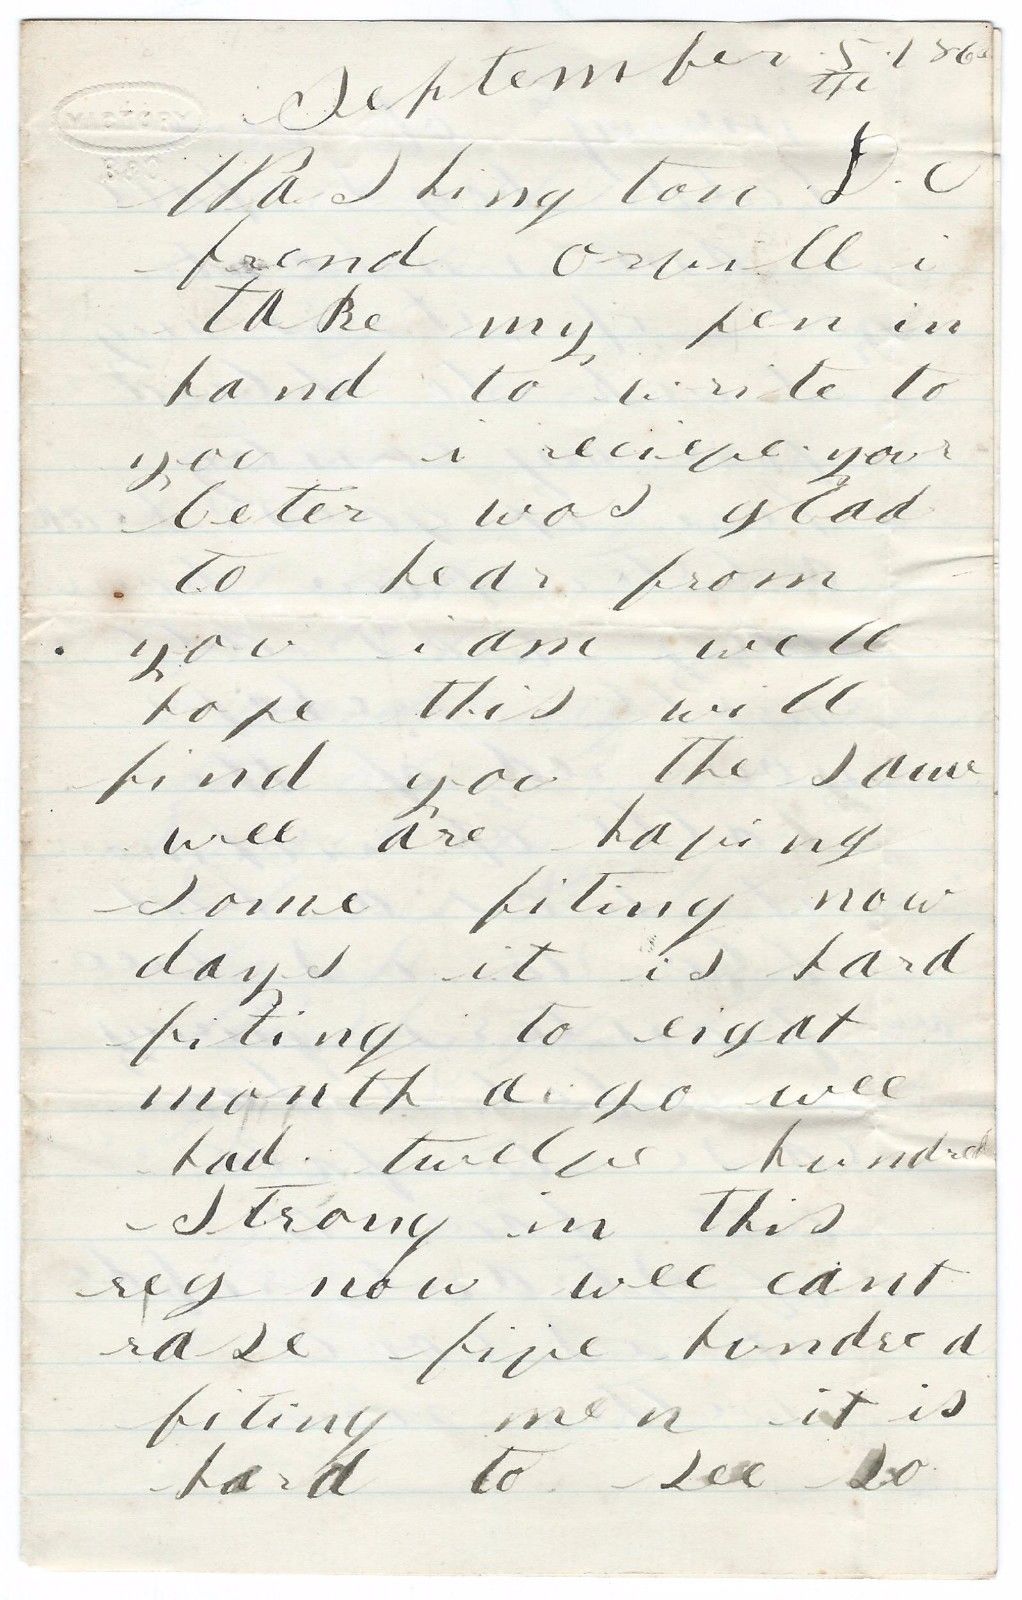 September 5th 186
Washington D.C
frend orvill i
take my pen in
hand to write to
you i recieve your
leter was glad
to hear from
you i am well
hope this will
find you the same
wee are having
some fiting now
days it is hard
fiting to eight
month a go wee
had twelve hundred
strong in this
reg now wee cant
rase five hundred
fiting men it is
hard to see so